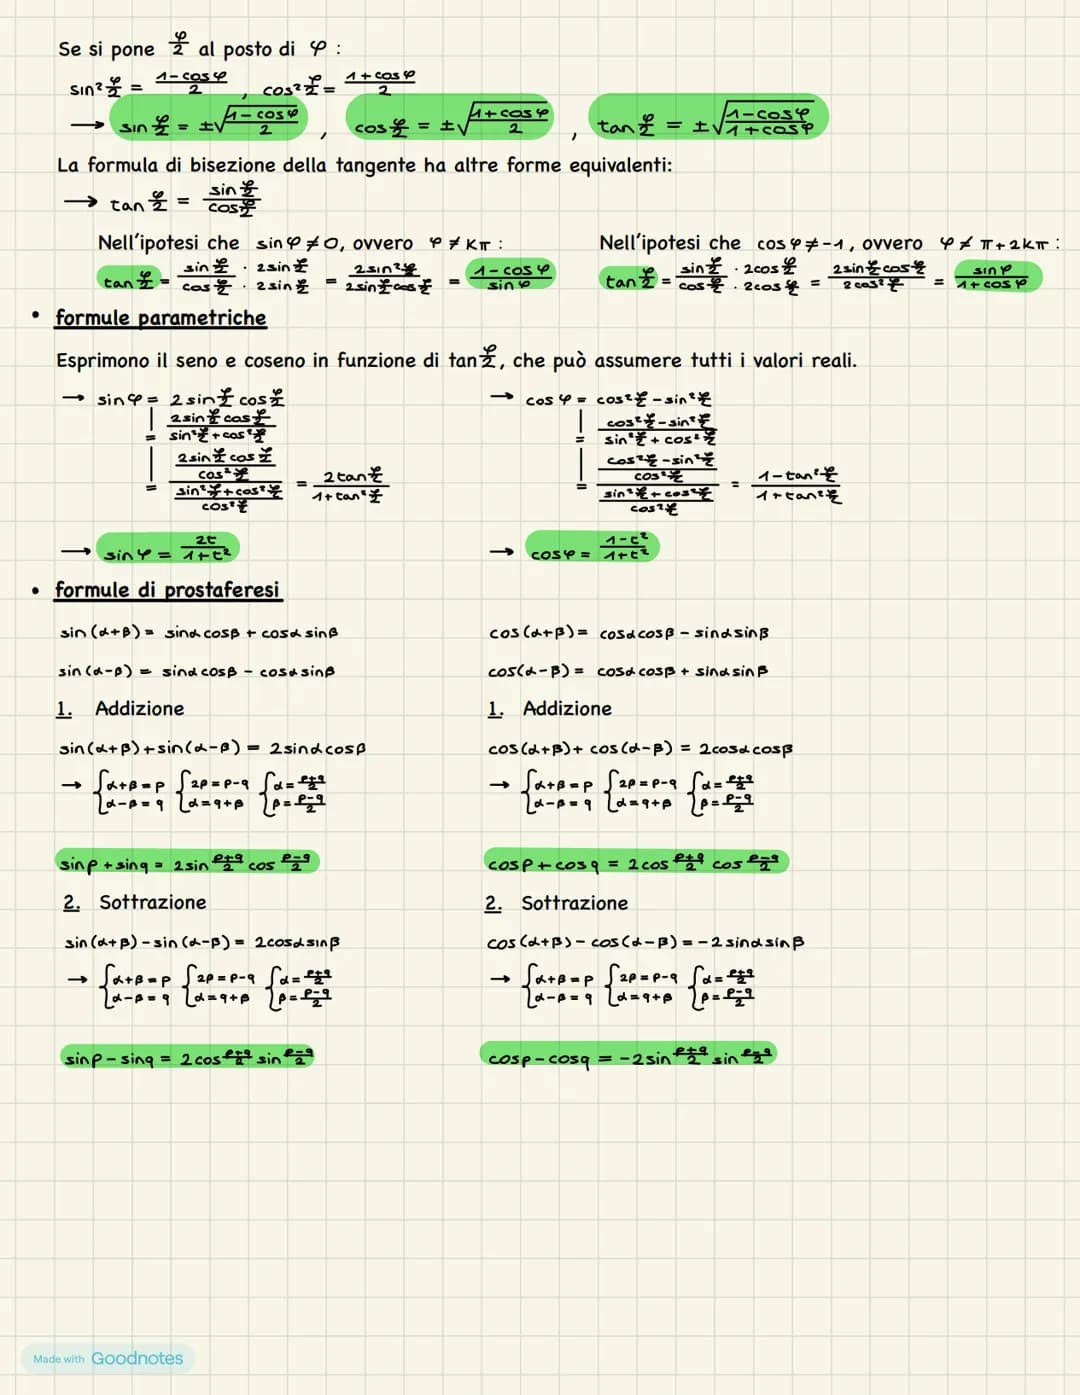 Se si pone φ/2 al posto di φ :
sin² φ/2 = (1-cosφ)/2 , cos² φ/2 = (1+cosφ)/2
→ sin φ/2 = ±√((1-cosφ)/2) , cos φ/2 = ±√((1+cosφ)/2) , tan φ/2 = ±√((1-cosφ)/(1+cosφ))
La formula di bisezione della tangente ha altre forme equivalenti:
→ tan φ/2 = (sin φ/2)/(cos φ/2)
Nell'ipotesi che sinφ≠0, ovvero φ≠Kπ :
tan φ/2 = (sin φ/2)/(cos φ/2) · (2sin φ/2)/(2sin φ/2) = (2sin² φ/2)/(2sin φ/2 cos φ/2) = (1-cosφ)/(sinφ)
Nell'ipotesi che cosφ≠-1, ovvero φ≠π+2Kπ :
tan φ/2 = (sin φ/2)/(cos φ/2) · (2cos φ/2)/(2cos φ/2) = (2sin φ/2 cos φ/2)/(2cos² φ/2) = (sinφ)/(1+cosφ)
• formule parametriche
Esprimono il seno e coseno in funzione di tan φ/2, che può assumere tutti i valori reali.
→ sinφ = 2sin φ/2 cos φ/2
= (2sin φ/2 cos φ/2)/(sin² φ/2 + cos² φ/2)
= ((2sin φ/2 cos φ/2)/(cos² φ/2))/((sin² φ/2 + cos² φ/2)/(cos² φ/2)) = (2tan φ/2)/(1+tan² φ/2)
→ sinφ = 2t/(1+t²)
→ cosφ = cos² φ/2 - sin² φ/2
= (cos² φ/2 - sin² φ/2)/(sin² φ/2 + cos² φ/2)
= ((cos² φ/2 - sin² φ/2)/(cos² φ/2))/((sin² φ/2 + cos² φ/2)/(cos² φ/2)) = (1-tan² φ/2)/(1+tan² φ/2)
→ cosφ = (1-t²)/(1+t²)
• formule di prostaferesi
sin(α+β) = sinαcosβ + cosαsinβ
sin(α-β) = sinαcosβ - cosαsinβ
1. Addizione
sin(α+β)+sin(α-β) = 2sinαcosβ
→ {α+β=p {2β=p-q {α=(p+q)/2
{α-β=q {α=q+β {β=(p-q)/2
sinp + sinq = 2sin (p+q)/2 cos (p-q)/2
2. Sottrazione
sin(α+β)-sin(α-β) = 2cosαsinβ
→ {α+β=p {2β=p-q {α=(p+q)/2
{α-β=q {α=q+β {β=(p-q)/2
sinp - sinq = 2cos (p+q)/2 sin (p-q)/2
cos(α+β) = cosαcosβ - sinαsinβ
cos(α-β) = cosαcosβ + sinαsinβ
1. Addizione
cos(α+β)+cos(α-β) = 2cosαcosβ
→ {α+β=p {2β=p-q {α=(p+q)/2
{α-β=q {α=q+β {β=(p-q)/2
cosp + cosq = 2cos (p+q)/2 cos (p-q)/2
2. Sottrazione
cos(α+β)-cos(α-β) = -2sinαsinβ
→ {α+β=p {2β=p-q {α=(p+q)/2
{α-β=q {α=q+β {β=(p-q)/2
cosp - cosq = -2sin (p+q)/2 sin (p-q)/2
Made with Goodnotes